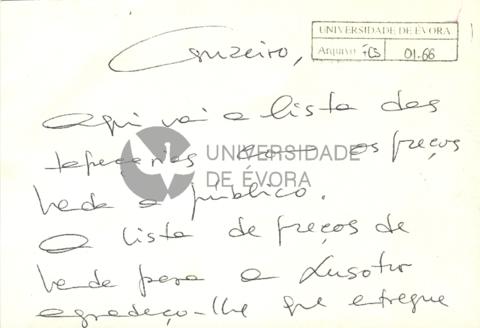 UNIVERSIDADE DE ÉVORA
Arquivo FCS 01.66
Cruzeiro,
Aqui vai a lista das
tapeçarias os preços
venda a público.
A lista de preços de
venda para a Lusotur
agradeço-lhe que entregue
UNIVERSIDADE
DE ÉVORA